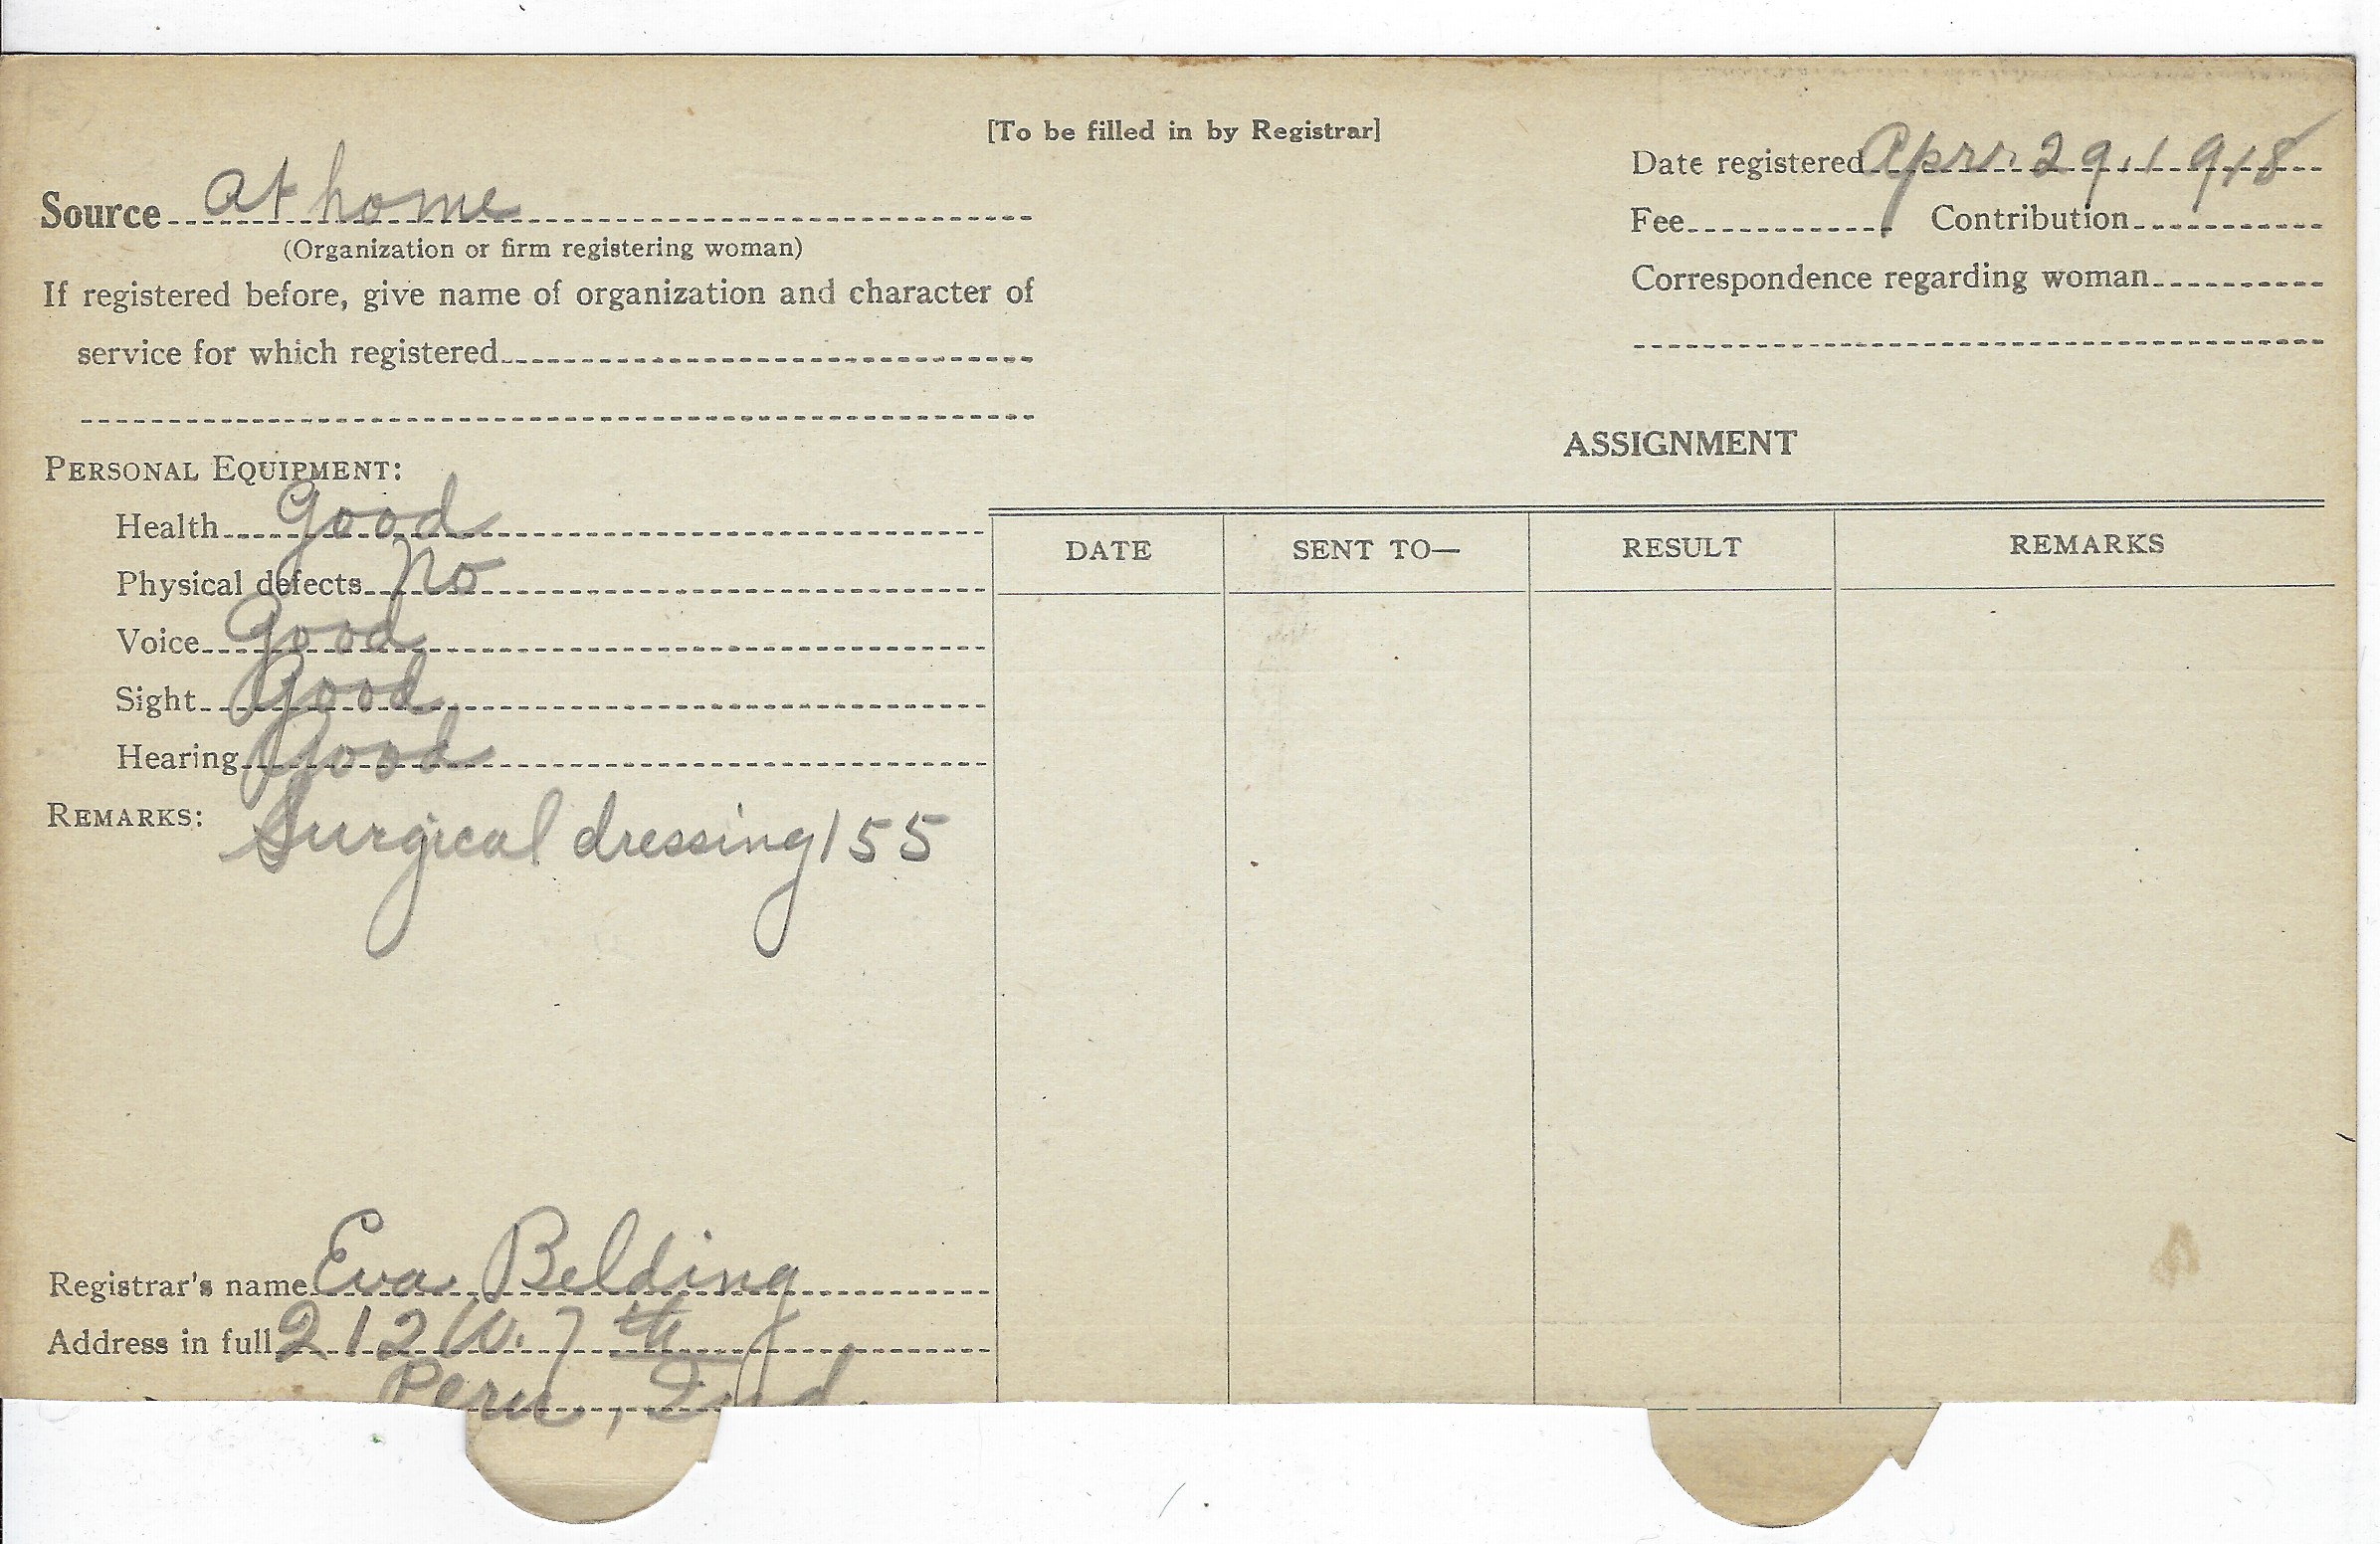 [To be filled in by Registrar]
Date registered Apr. 29, 1918
Source at home
Fee Contribution
(Organization or firm registering woman)
Correspondence regarding woman
If registered before, give name of organization and character of
service for which registered
ASSIGNMENT
PERSONAL EQUIPMENT:
Health Good
DATE SENT TO— RESULT REMARKS
Physical defects No
Voice Good
Sight Good
Hearing Good
REMARKS: Surgical dressing 155
Registrar's name Eva Belding
Address in full 212 W. 7th
Peru, Ind.